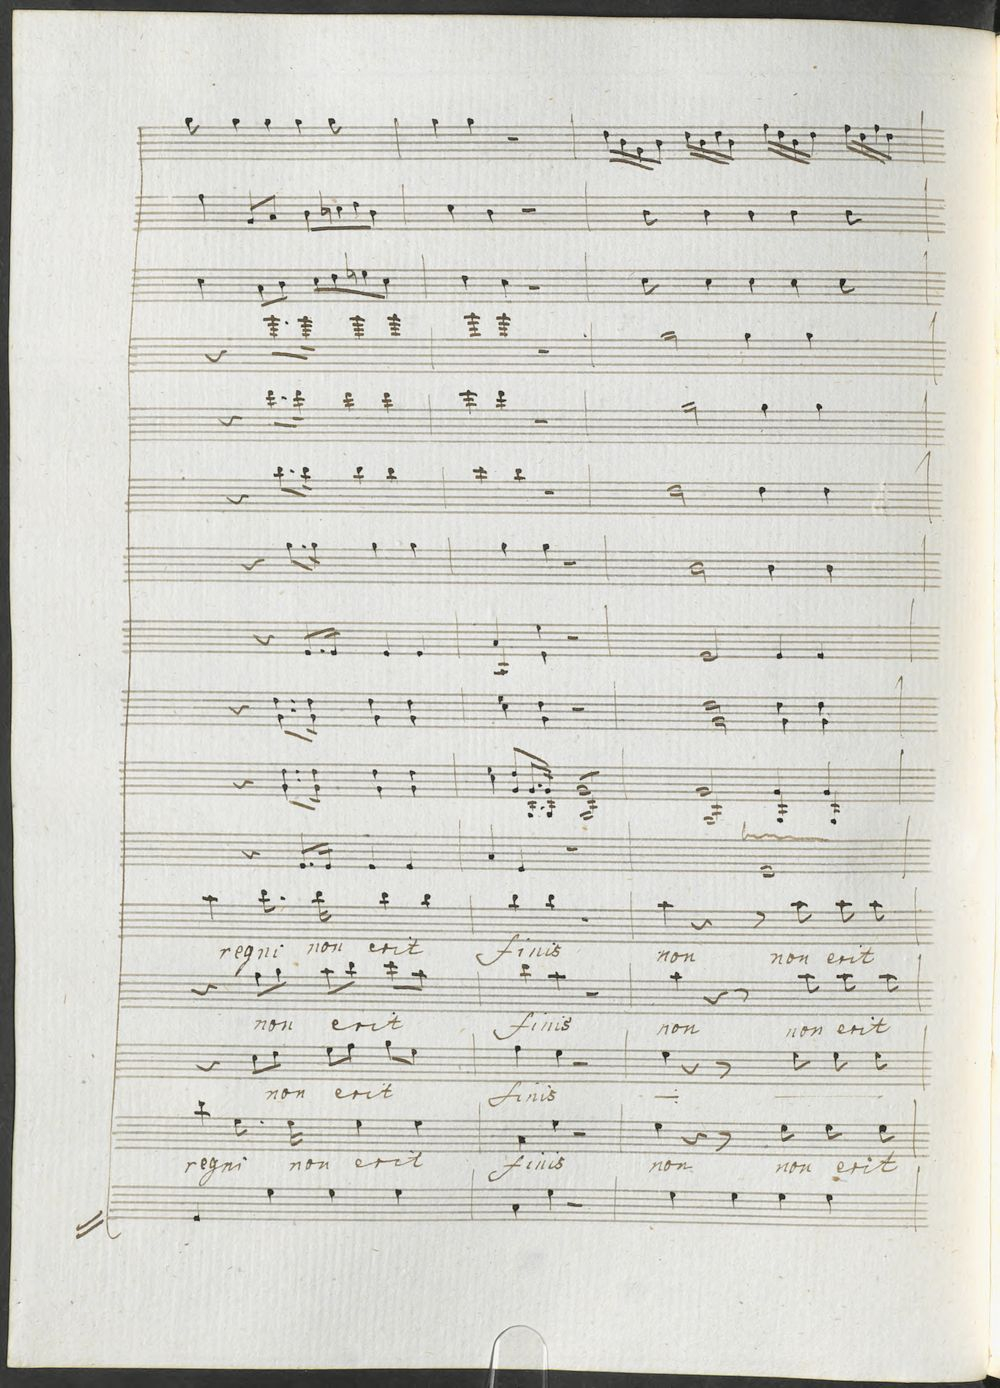 regni non erit finis non non erit
non erit finis non non erit
non erit finis
regni non erit finis non non erit